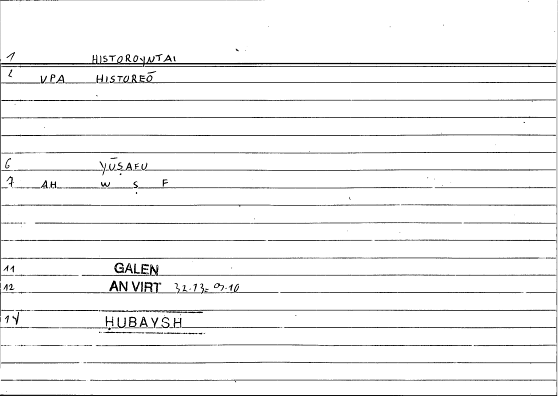 1 HISTOROYNTAI
2 VPA HISTOREŌ
6 YŪṢAFU
7 AH W Ṣ F
11 GALEN
12 AN VIRT
14 ḤUBAYSH